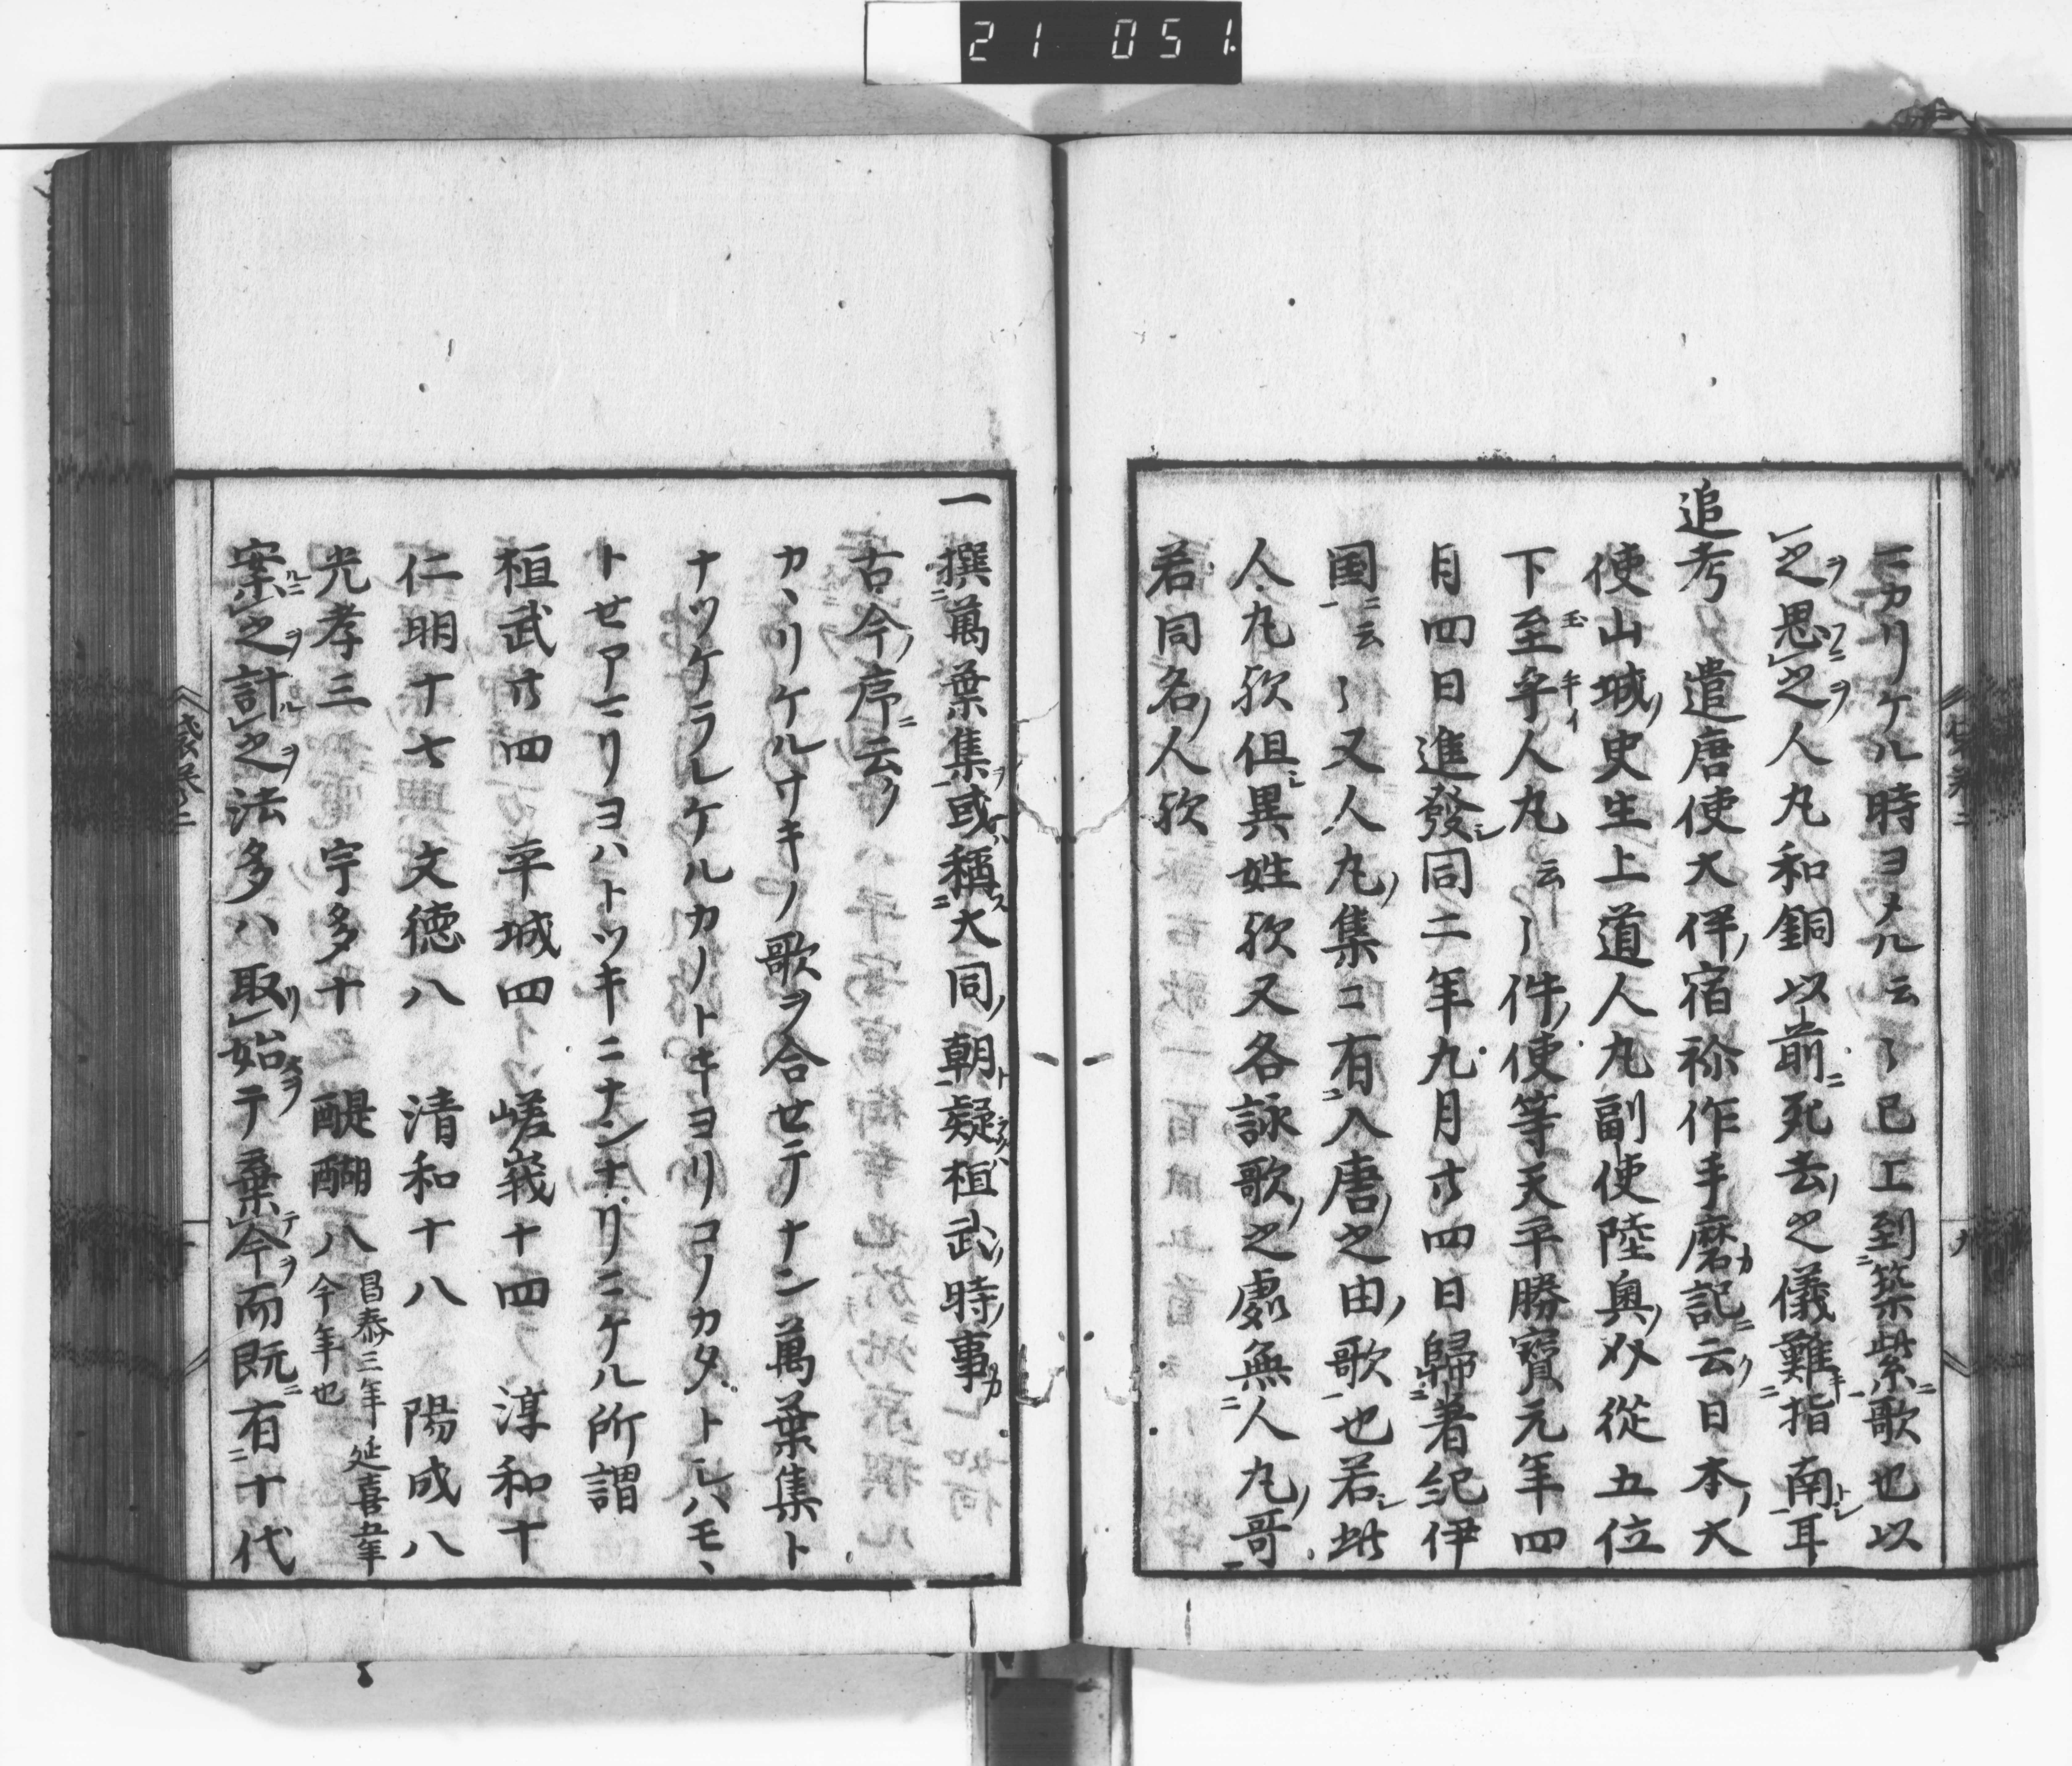 21 051
ニカリケル時ヨメル云〻已上到筑紫歌也以
之思之人丸和銅以前死去之儀難指南耳
追考 遣唐使大伴宿祢作手麿記云日本大
使山城史生上道人丸副使陸奥从従五位
下至牟人丸云〻件使等天平勝寶元年四
月四日進發同二年九月廾四日歸着紀伊
国云〻又人丸集ニ有入唐之由歌也若此
人丸欤但異姓欤又各詠歌之處無人丸哥
若同名人欤
一撰萬葉集或稱大同朝疑桓武時事
古今序云
カヽリケルサキノ歌ヲ合セテナン萬葉集ト
ナツケラレケルカノトキヨリコノカタトシハモヽ
トセアマリヨハトツキニナンナリニケル所謂
桓武廾四 平城四 嵯峩十四 淳和十
仁明十七 文徳八 清和十八 陽成八
光孝三 宇多十 醍醐八 昌泰三年 延喜五年 今年也
案之計之法多ハ取始テ棄今而既有十代